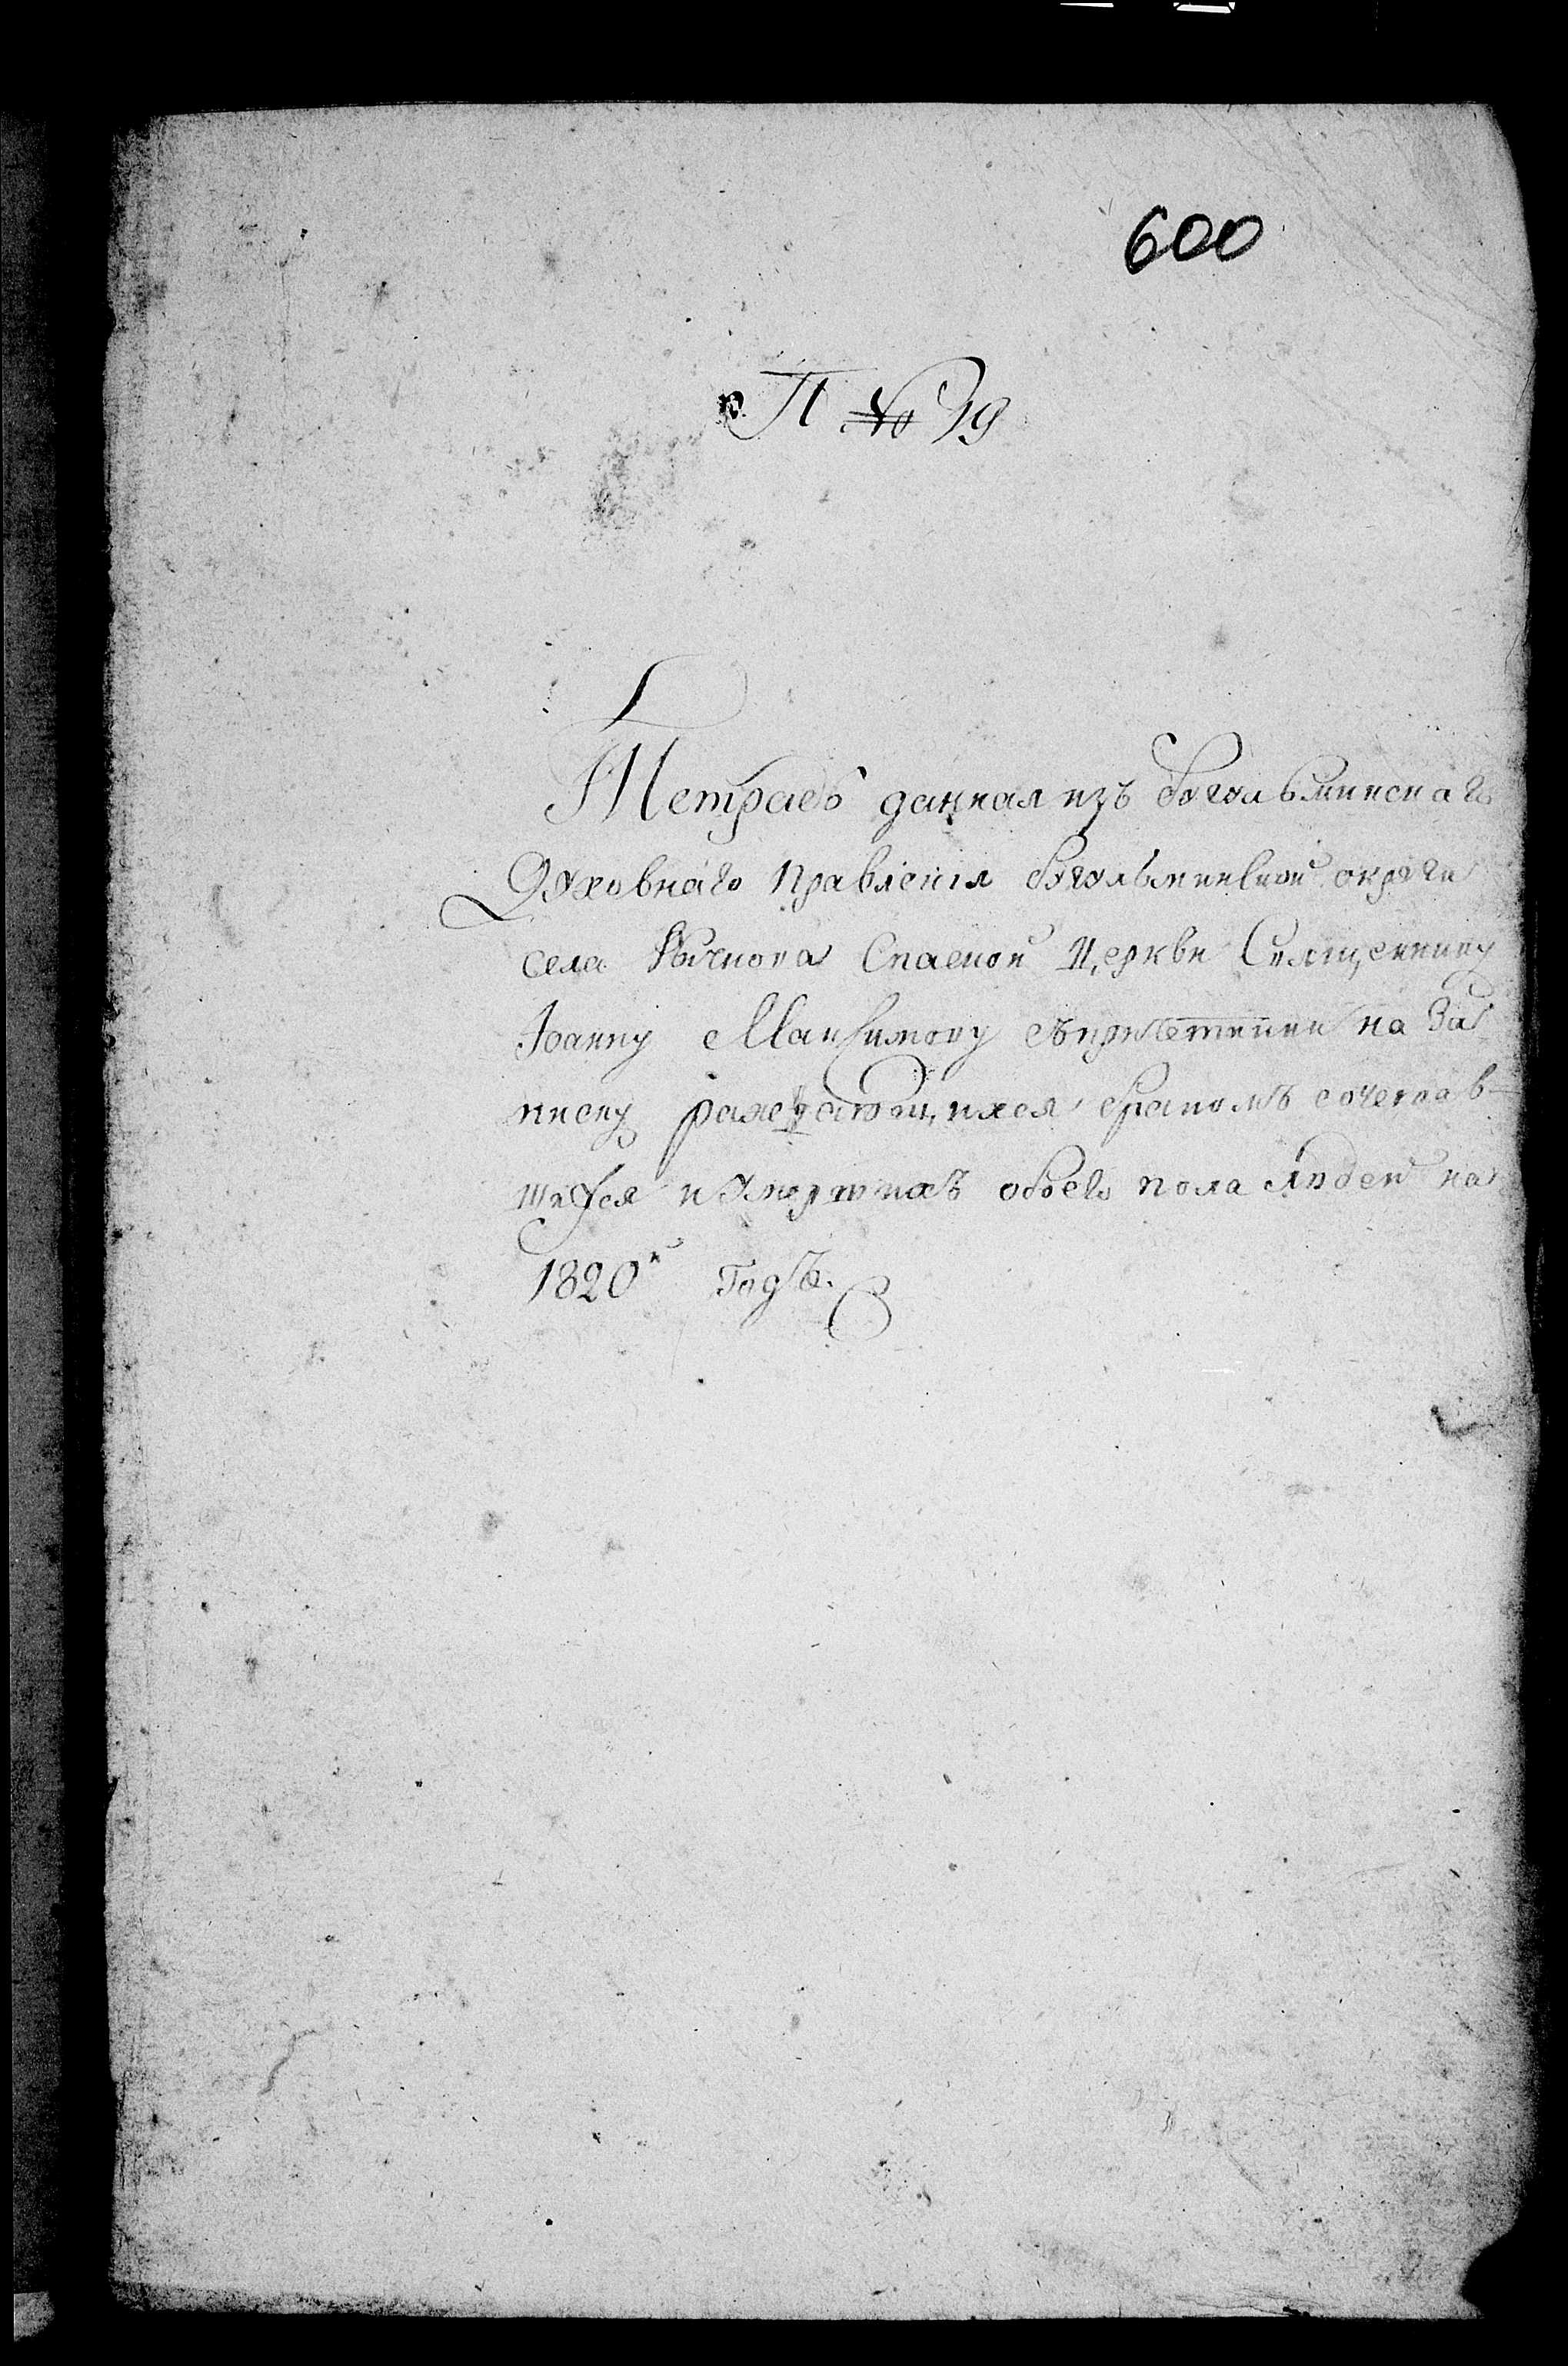 600
П № 19
Тетрадь данная изъ Бугульминскаго
Духовнаго Правленія Бугульминской округи
села Спаской Церкви Священнику
Іоанну Максимову съ причетники на За
писку раждающихся бракомъ сочетав-
шихся и умершихъ обоего пола людей на
1820й Годъ.